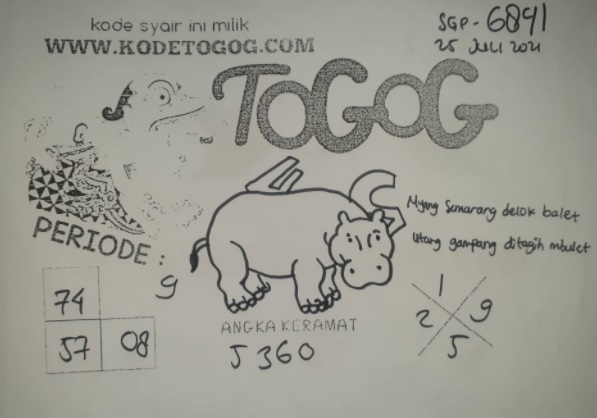 kode syair ini milik
WWW.KODETOGOG.COM
SGP - 6841
25 JULI 2021
TOGOG
Mjung Semarang delok balet
Utang gampang ditagih mbulet
PERIODE :
9
74
57 08
ANGKA KERAMAT
5360
1
2 9
5